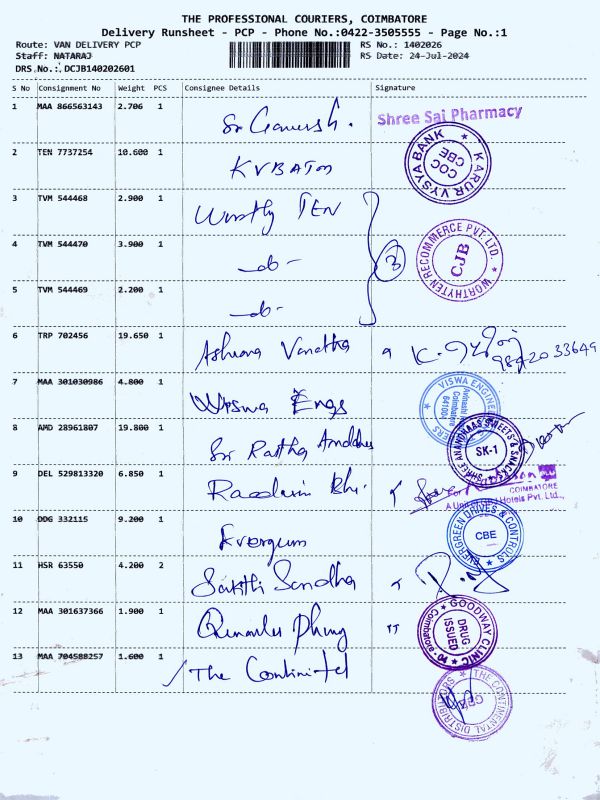 THE PROFESSIONAL COURIERS, COIMBATORE
Delivery Runsheet - PCP - Phone No.:0422-3505555 - Page No.:1
Route: VAN DELIVERY PCP
RS No.: 1402026
Staff: NATARAJ
RS Date: 24-Jul-2024
DRS No.: DCJB140202601
S No Consignment No Weight PCS Consignee Details Signature
1 MAA 866563143 2.706 1 Sr Ganesh. Shree Sai Pharmacy
2 TEN 7737254 10.600 1 KVB ATM KARUR VYSYA BANK COC CBE
3 TVM 544468 2.900 1 TEN
4 TVM 544470 3.900 1 -do- 3 WORTHYTEN RECOMMERCE PVT. LTD. CJB
5 TVM 544469 2.200 1 -do-
6 TRP 702456 19.650 1 K.
33649
7 MAA 301030986 4.800 1 Viswa Engs VISWA ENGINEERS Avinashi Road Coimbatore 641004
8 AMD 28961807 19.800 1 Sri SHREE ANANDHAAS SWEETS & SNACKS SK-1
9 DEL 529813320 6.850 1
COIMBATORE
Hotels Pvt. Ltd.,
10 DDG 332115 9.200 1 EVERGREEN DRIVES & CONTROLS CBE
11 HSR 63550 4.200 2 Sakthi
12 MAA 301637366 1.900 1 GOODWAY CLINIC DRUG ISSUED Coimbatore
13 MAA 704588257 1.600 1 The Continintel
THE CONTINENTAL DISTRIBUTORS